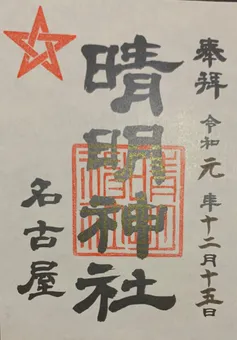 奉拝
令和元年十二月十五日
晴明神社
名古屋